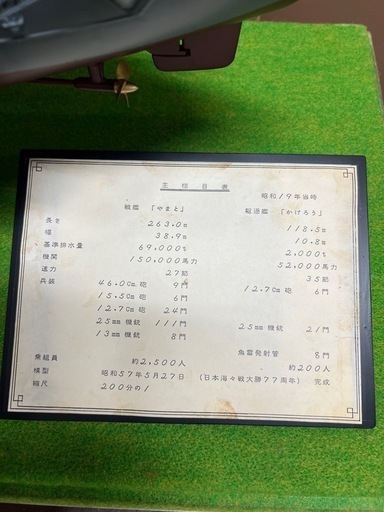 主要目表
昭和19年当時
戦艦 「やまと」 駆逐艦 「かげろう」
長さ 263.0m 118.5m
幅 38.9m 10.8m
基準排水量 69,000t 2,000t
機関 150,000馬力 52,000馬力
速力 27節 35節
兵装 46.0cm砲 9門 12.7cm砲 6門
15.5cm砲 6門
12.7cm砲 24門
25mm機銃 111門 25mm機銃 21門
13mm機銃 8門
魚雷発射管 8門
乗組員 約2,500人 約200人
模型 昭和57年5月27日 (日本海々戦大勝77周年) 完成
縮尺 200分の1